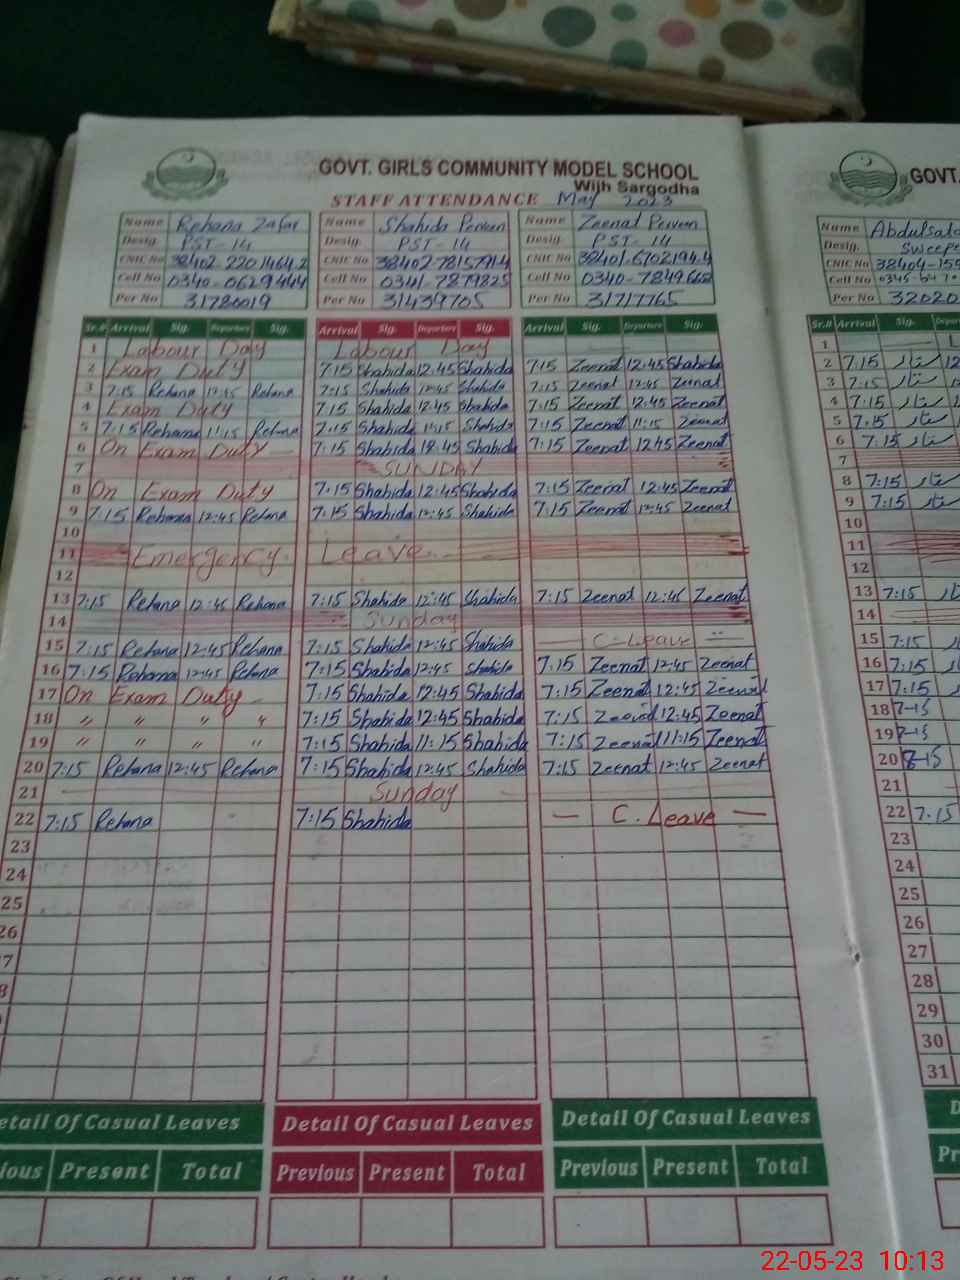 GOVT. GIRLS COMMUNITY MODEL SCHOOL GOVT.
Wijh Sargodha
STAFF ATTENDANCE May 2023
Name Rehana Zafar Name Shahida Perveen Name Zeenat Perveen Name
Desig. PST-14 Desig. PST-14 Desig. PST-14 Desig.
CNIC No CNIC No CNIC No CNIC No
Cell No Cell No Cell No Cell No
Per No 31786019 Per No 31439705 Per No 31717765 Per No 32020
Sr.# Arrival Sig. Departure Sig. Arrival Sig. Departure Sig. Arrival Sig. Departure Sig. Sr.# Arrival Sig.
1 Labour Day Labour Day 1
2 Exam Duty 7:15 Shahida 12:45 Shahida 7:15 Zeenat 12:45 Shahida 2 7:15 ستار 12
3 7:15 Rehana 12:45 Rehana 7:15 Shahida 12:45 Shahida 7:15 Zeenat 12:45 Zeenat 3 7:15 ستار
4 Exam Duty 7:15 Shahida 12:45 Shahida 7:15 Zeenat 12:45 Zeenat 4 7:15 ستار
5 7:15 Rehana 11:15 Rehana 7:15 Shahida 11:15 Shahida 7:15 Zeenat 11:15 Zeenat 5 7:15 ستار
6 On Exam Duty 7:15 Shahida 12:45 Shahida 7:15 Zeenat 12:45 Zeenat 6 7:15 ستار
7 SUNDAY 7
8 On Exam Duty 7:15 Shahida 12:45 Shahida 7:15 Zeenat 12:45 Zeenat 8 7:15
9 7:15 Rehana 12:45 Rehana 7:15 Shahida 12:45 Shahida 7:15 Zeenat 12:45 Zeenat 9 7:15
10 10
11 Emergency Leave 11
12 12
13 7:15 Rehana 12:45 Rehana 7:15 Shahida 12:45 Shahida 7:15 Zeenat 12:45 Zeenat 13 7:15
14 Sunday 14
15 7:15 Rehana 12:45 Rehana 7:15 Shahida 12:45 Shahida C-Leave 15 7:15
16 7:15 Rehana 12:45 Rehana 7:15 Shahida 12:45 Shahida 7:15 Zeenat 12:45 Zeenat 16 7:15
17 On Exam Duty 7:15 Shahida 12:45 Shahida 7:15 Zeenat 12:45 Zeenat 17 7:15
18 〃 〃 〃 〃 7:15 Shahida 12:45 Shahida 7:15 Zeenat 12:45 Zeenat 18 7-15
19 〃 〃 〃 〃 7:15 Shahida 11:15 Shahida 7:15 Zeenat 11:15 Zeenat 19 7-15
20 7:15 Rehana 12:45 Rehana 7:15 Shahida 12:45 Shahida 7:15 Zeenat 12:45 Zeenat 20 8-15
21 Sunday 21
22 7:15 Rehana 7:15 Shahida C. Leave 22 7:15
23 23
24 24
25 25
26 26
27
28
29
30
31
Detail Of Casual Leaves Detail Of Casual Leaves
Previous Present Total Previous Present Total
22-05-23 10:13